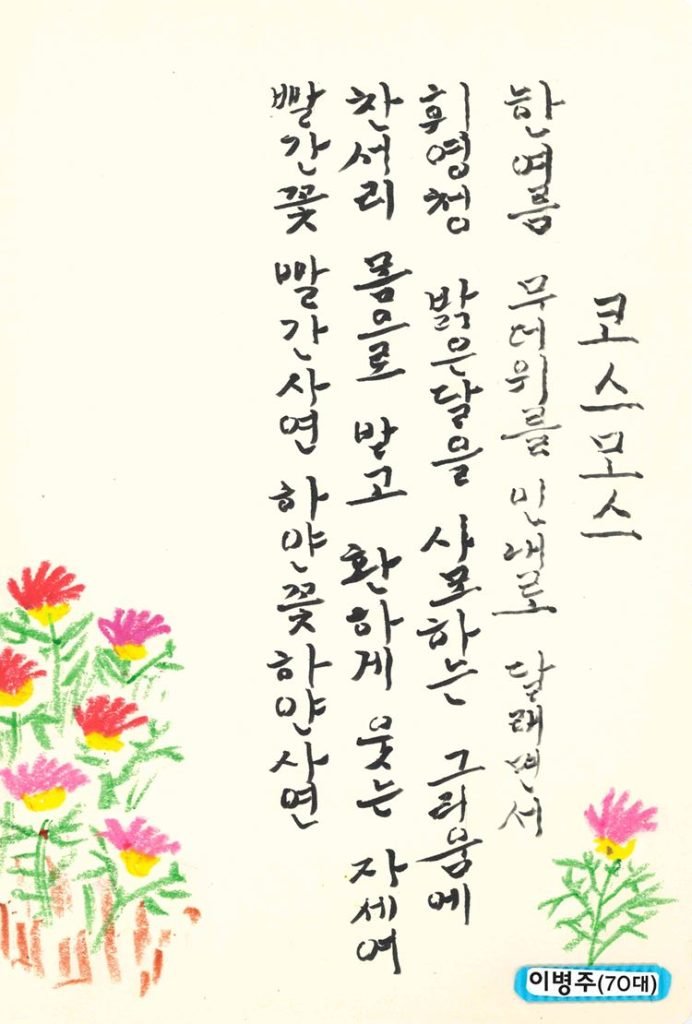 코스모스
한여름 무더위를 인내로 달래면서
휘영청 밝은달을 사모하는 그리움에
찬서리 몸으로 받고 환하게 웃는 자세여
빨간꽃 빨간사연 하얀꽃하얀사연
이병주(70대)